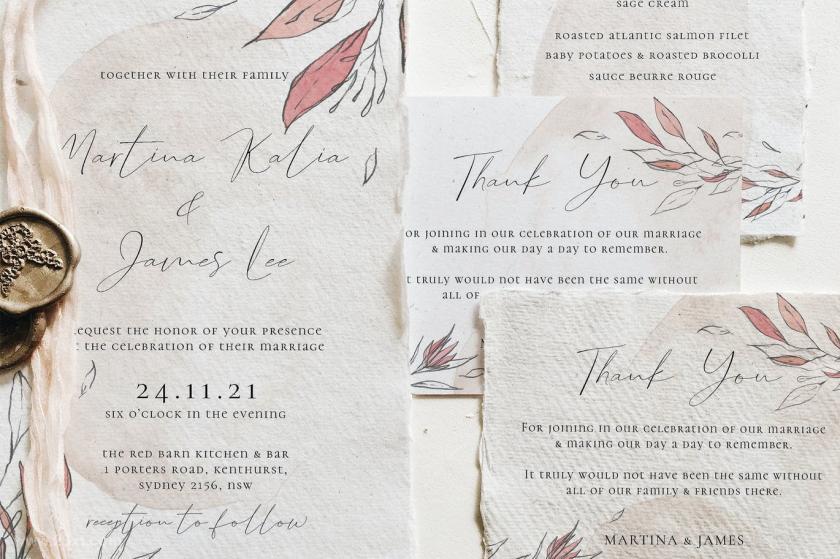 together with their family
Martina Kalia
&
James Lee
request the honor of your presence
the celebration of their marriage
24.11.21
six o'clock in the evening
the red barn kitchen & bar
1 porters road, kenthurst,
sydney 2156, nsw
reception to follow
sage cream
roasted atlantic salmon filet
baby potatoes & roasted brocolli
sauce beurre rouge
Thank You
or joining in our celebration of our marriage
& making our day a day to remember.
t truly would not have been the same without
all of
Thank You
For joining in our celebration of our marriage
& making our day a day to remember.
It truly would not have been the same without
all of our family & friends there.
MARTINA & JAMES